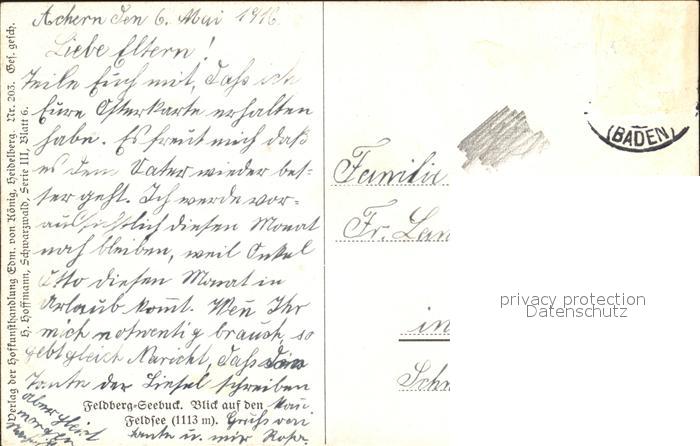 Achern den 6. Mai 1916.
Liebe Eltern!
Teile Euch mit, daß ich
Eure Osterkarte erhalten
habe. Es freut mich daß
es dem Vater wieder bes-
ser geht. Ich werde vor-
aussichtlich diesen Monat
noch bleiben, weil Onkel
Otto diesen Monat in
Urlaub komt. Wen Ihr
mich notwentig braucht, so
gebt gleich Naricht, daß die
Tante der Liesel schreiben
kan.
Gruß von
Tante u. mir Rosa.
aber gleich
morgen
Feldberg-Seebuck. Blick auf den
Feldsee (1113 m).
Verlag der Hofkunsthandlung Edm. von König, Heidelberg. Nr. 203. Ges. gesch.
H. Hoffmann, Schwarzwald, Serie III, Blatt 6.
(BADEN)
Familie
Fr. Lan
in
Sch
privacy protection
Datenschutz